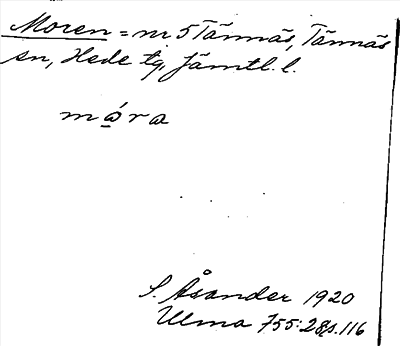 Moren = nr 5 Tännäs, Tännäs
sn, Hede tg, Jämtl. l.
mǫ́ra
S. Åsander 1920
Ulma 755:28, s. 116